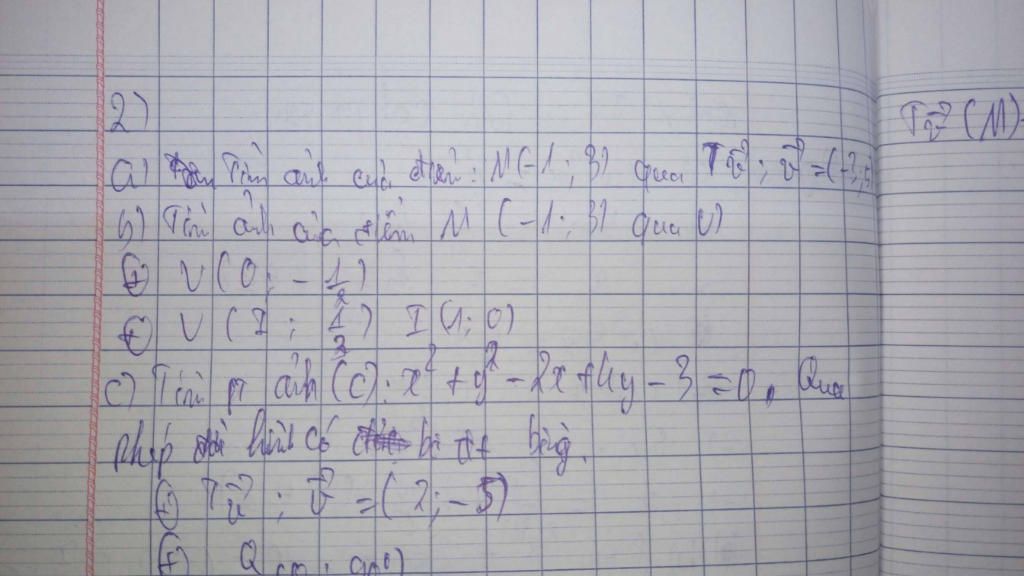 2)
a) Tìm ảnh của điểm: M(-1; 3) qua Tv⃗; v⃗ =(
b) Tìm ảnh của điểm M (-1; 3) qua V)
+ V (O; -1/2)
+ V (I; 1/2) I(1; 0)
c) Tìm pt ảnh (C): x² + y² - 2x + 4y - 3 = 0. Qua
phép hình có bằng.
+ Tv⃗; v⃗ = (2; -5)
+ Q
Tv⃗ (M)=